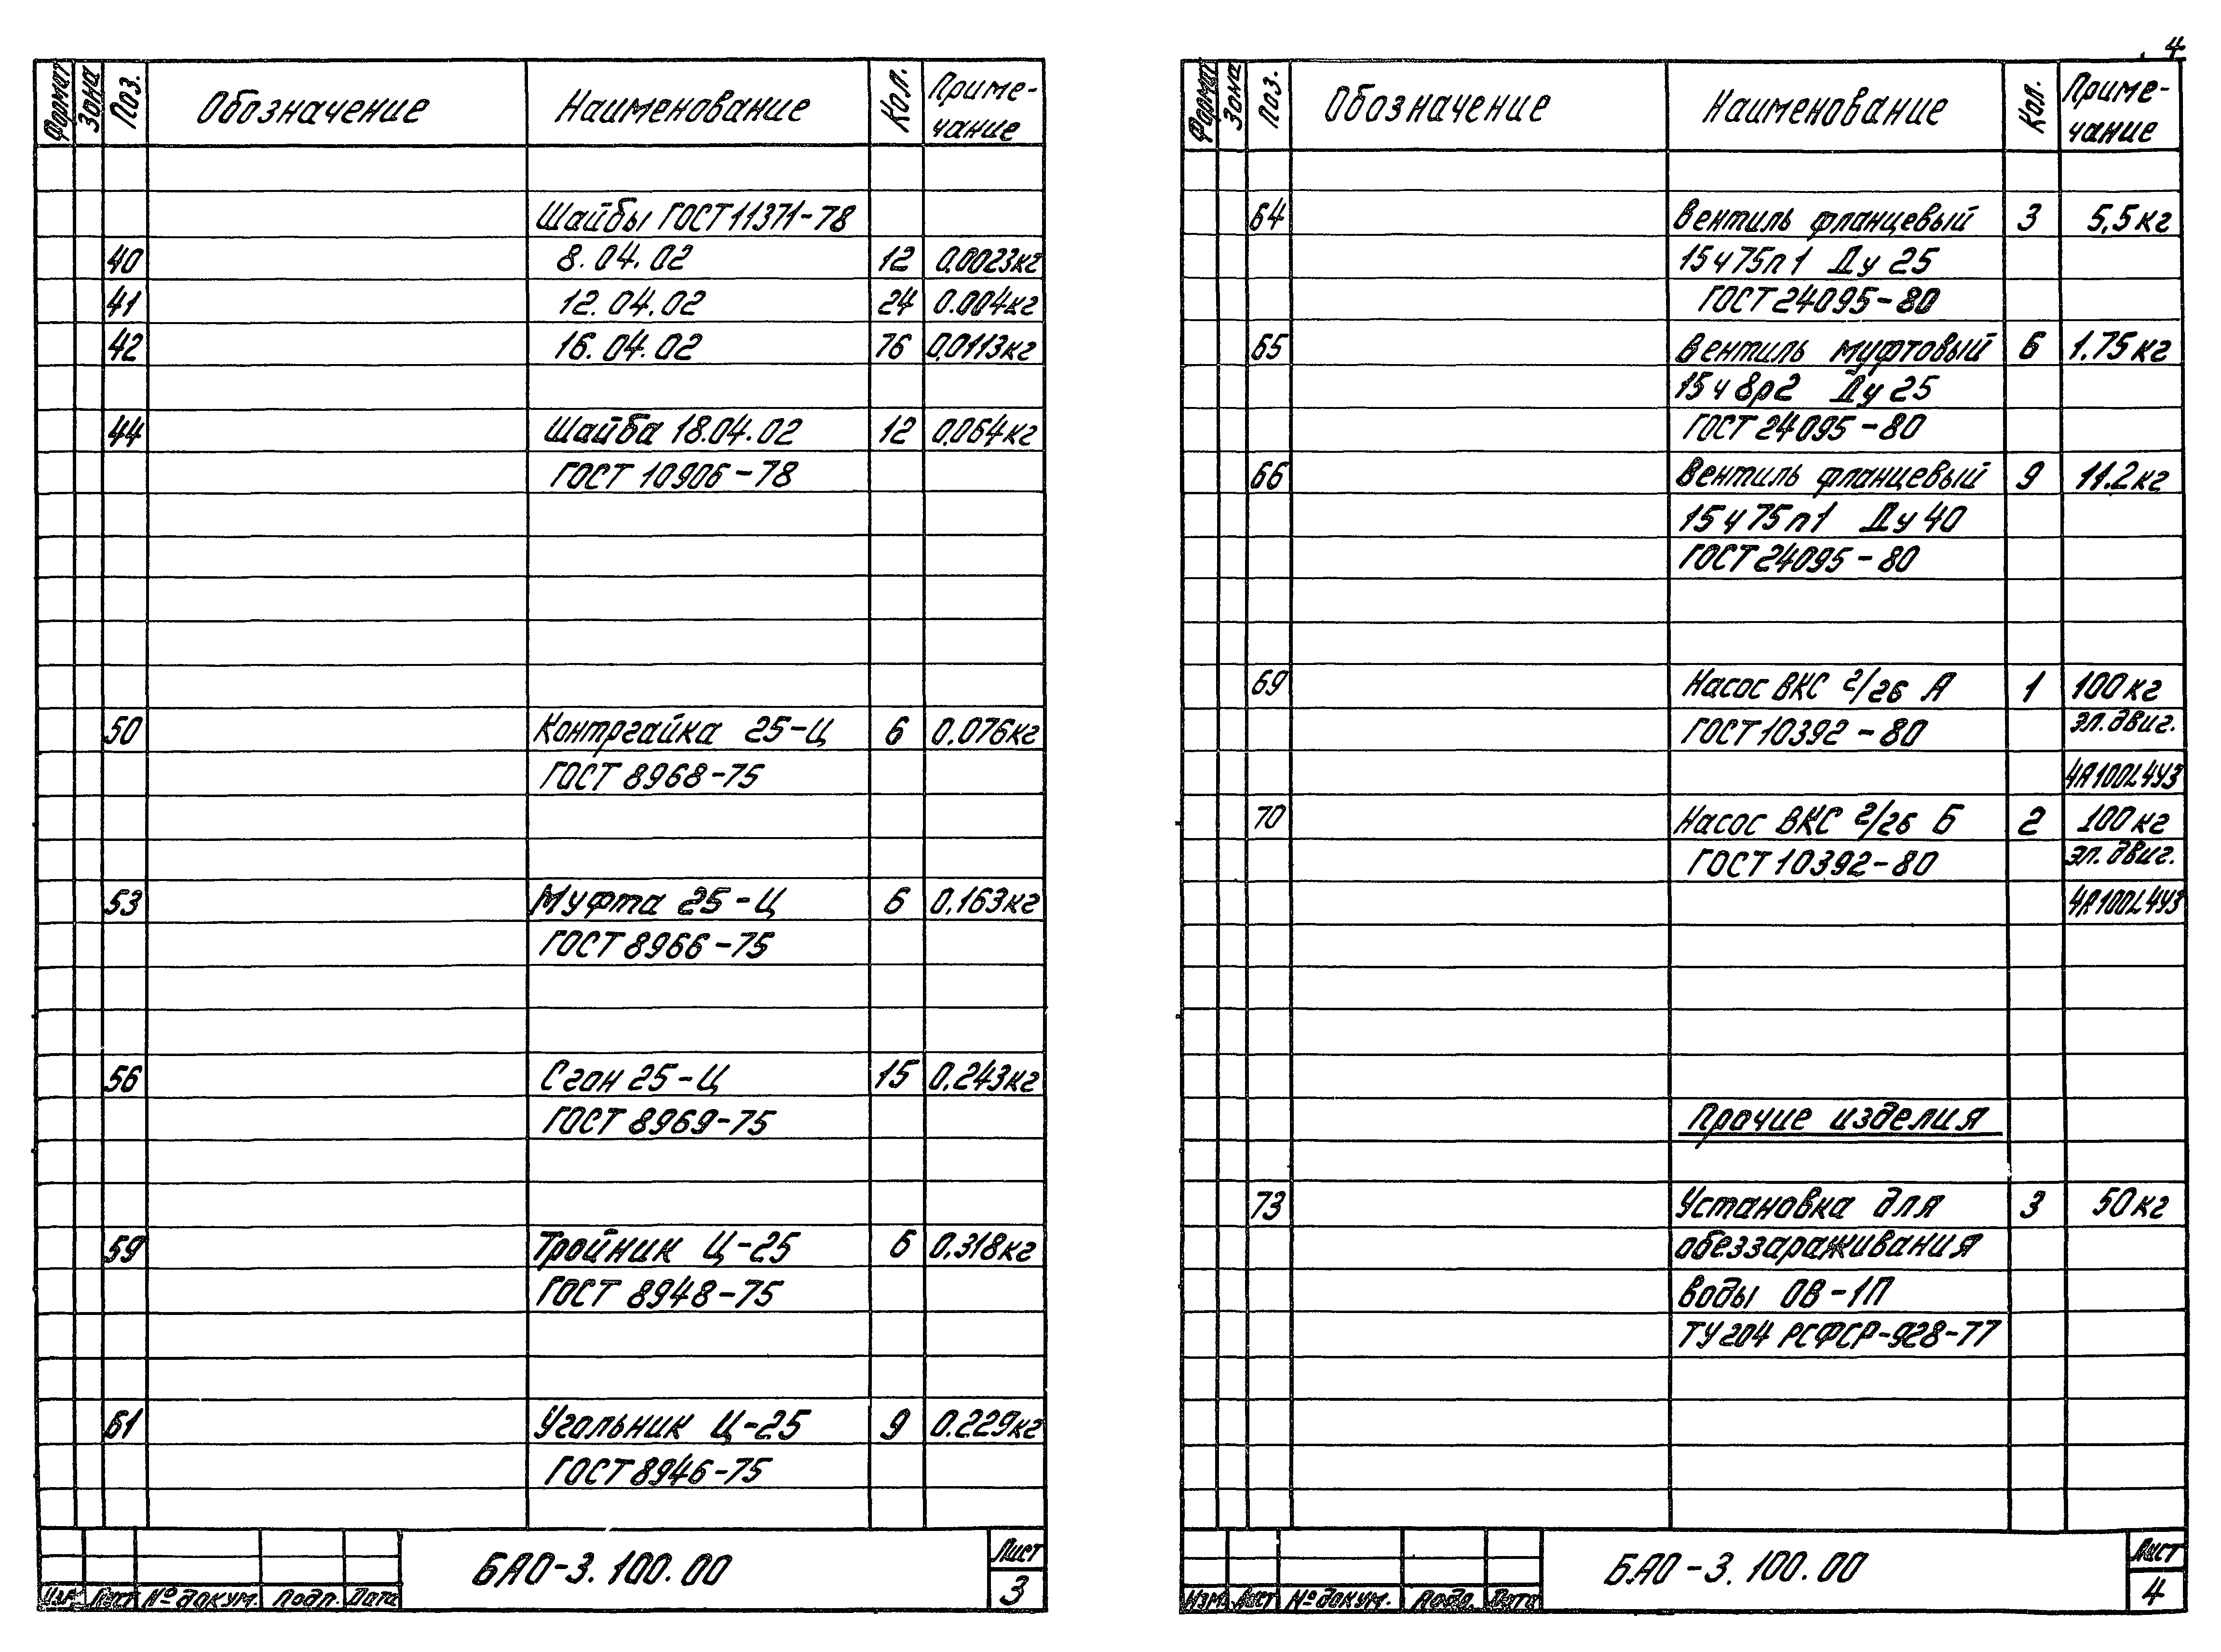 4
Формат Зона Поз. Обозначение Наименование Кол. Приме-
чание
Шайбы ГОСТ 11371-78
40 8.04.02 12 0,0023кг
41 12.04.02 24 0.004кг
42 16.04.02 76 0,0113кг
44 Шайба 18.04.02 12 0,064кг
ГОСТ 10906-78
50 Контргайка 25-Ц 6 0.076кг
ГОСТ 8968-75
53 Муфта 25-Ц 6 0,163кг
ГОСТ 8966-75
56 Сгон 25-Ц 15 0,243кг
ГОСТ 8969-75
59 Тройник Ц-25 6 0,318кг
ГОСТ 8948-75
61 Угольник Ц-25 9 0.229кг
ГОСТ 8946-75
Изм. Лист № докум. Подп. Дата
БАО-3.100.00
Лист
3
Формат Зона Поз. Обозначение Наименование Кол. Приме-
чание
64 Вентиль фланцевый 3 5,5кг
15ч75п1 Ду 25
ГОСТ 24095-80
65 Вентиль муфтовый 6 1.75кг
15ч8р2 Ду 25
ГОСТ 24095-80
66 Вентиль фланцевый 9 11.2кг
15ч75п1 Ду 40
ГОСТ 24095-80
69 Насос ВКС 2/26 А 1 100кг
ГОСТ 10392-80 эл.двиг.
4А100L4У3
70 Насос ВКС 2/26 Б 2 100кг
ГОСТ 10392-80 эл.двиг.
4А100L4У3
Прочие изделия
73 Установка для 3 50кг
обеззараживания
воды ОВ-1П
ТУ 204 РСФСР-928-77
Изм. Лист № докум. Подп. Дата
БАО-3.100.00
Лист
4